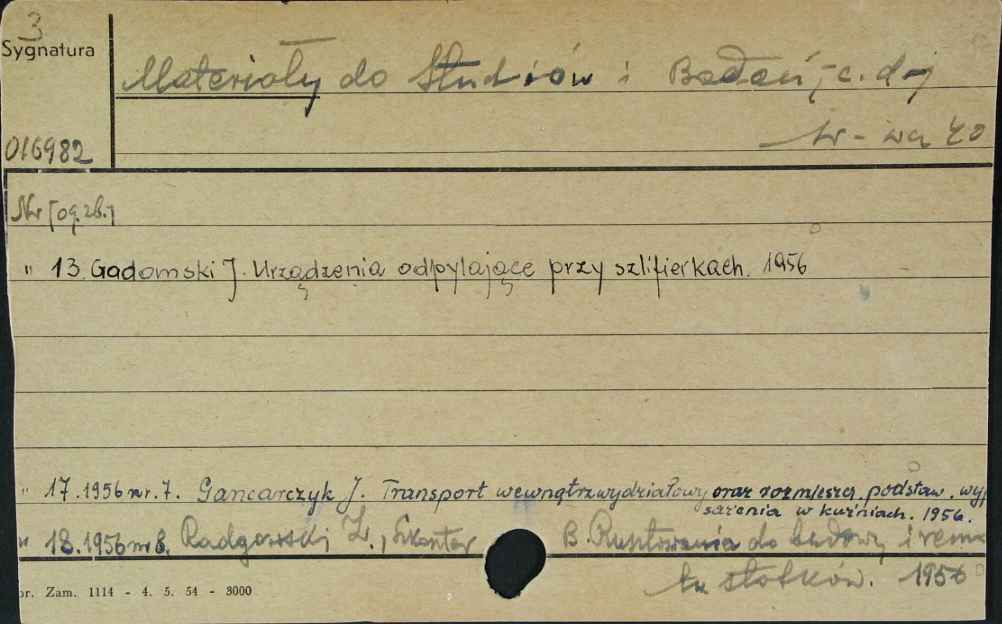 3
Sygnatura
Materiały do Studiów i Badań, c. d.
W-wa
016982
Nr [og. zb.]
" 13. Gadomski J. Urządzenia odpylające przy szlifierkach. 1956
" 17. 1956 nr. 7. Gancarczyk J. Transport wewnątrzwydziałowy oraz rozmieszcz. podstaw. wypo
sażenia w kuźniach. 1956.
" 18. 1956 nr 8. Radgowski Z., B. Rusztowania do budowy i remo
tu statków. 1956
or. Zam. 1114 - 4. 5. 54 - 3000